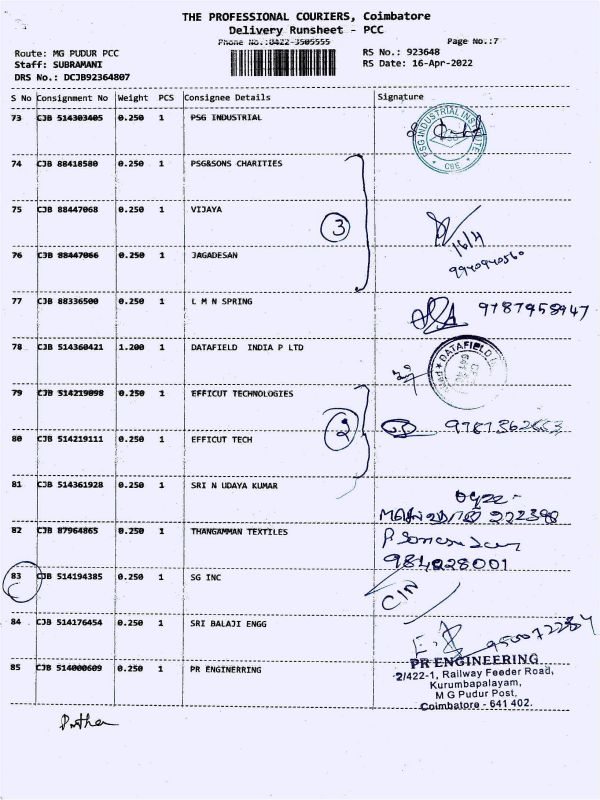 THE PROFESSIONAL COURIERS, Coimbatore
Delivery Runsheet - PCC
Phone No.:0422-3505555
Page No.:7
Route: MG PUDUR PCC
RS No.: 923648
Staff: SUBRAMANI
RS Date: 16-Apr-2022
DRS No.: DCJB92364807
S No Consignment No Weight PCS Consignee Details Signature
73 CJB 514303405 0.250 1 PSG INDUSTRIAL
PSG INDUSTRIAL INSTITUTE
CBE
74 CJB 88418580 0.250 1 PSG&SONS CHARITIES
75 CJB 88447068 0.250 1 VIJAYA
3
16/4
76 CJB 88447066 0.250 1 JAGADESAN
9940940560
77 CJB 88336500 0.250 1 L M N SPRING
9787958947
78 CJB 514360421 1.200 1 DATAFIELD INDIA P LTD
DATAFIELD
79 CJB 514219098 0.250 1 EFFICUT TECHNOLOGIES
2
80 CJB 514219111 0.250 1 EFFICUT TECH
81 CJB 514361928 0.250 1 SRI N UDAYA KUMAR
82 CJB 87964865 0.250 1 THANGAMMAN TEXTILES
984028001
83 CJB 514194385 0.250 1 SG INC
84 CJB 514176454 0.250 1 SRI BALAJI ENGG
85 CJB 514000609 0.250 1 PR ENGINERRING
PR ENGINEERING
2/422-1, Railway Feeder Road,
Kurumbapalayam,
M G Pudur Post,
Coimbatore - 641 402.